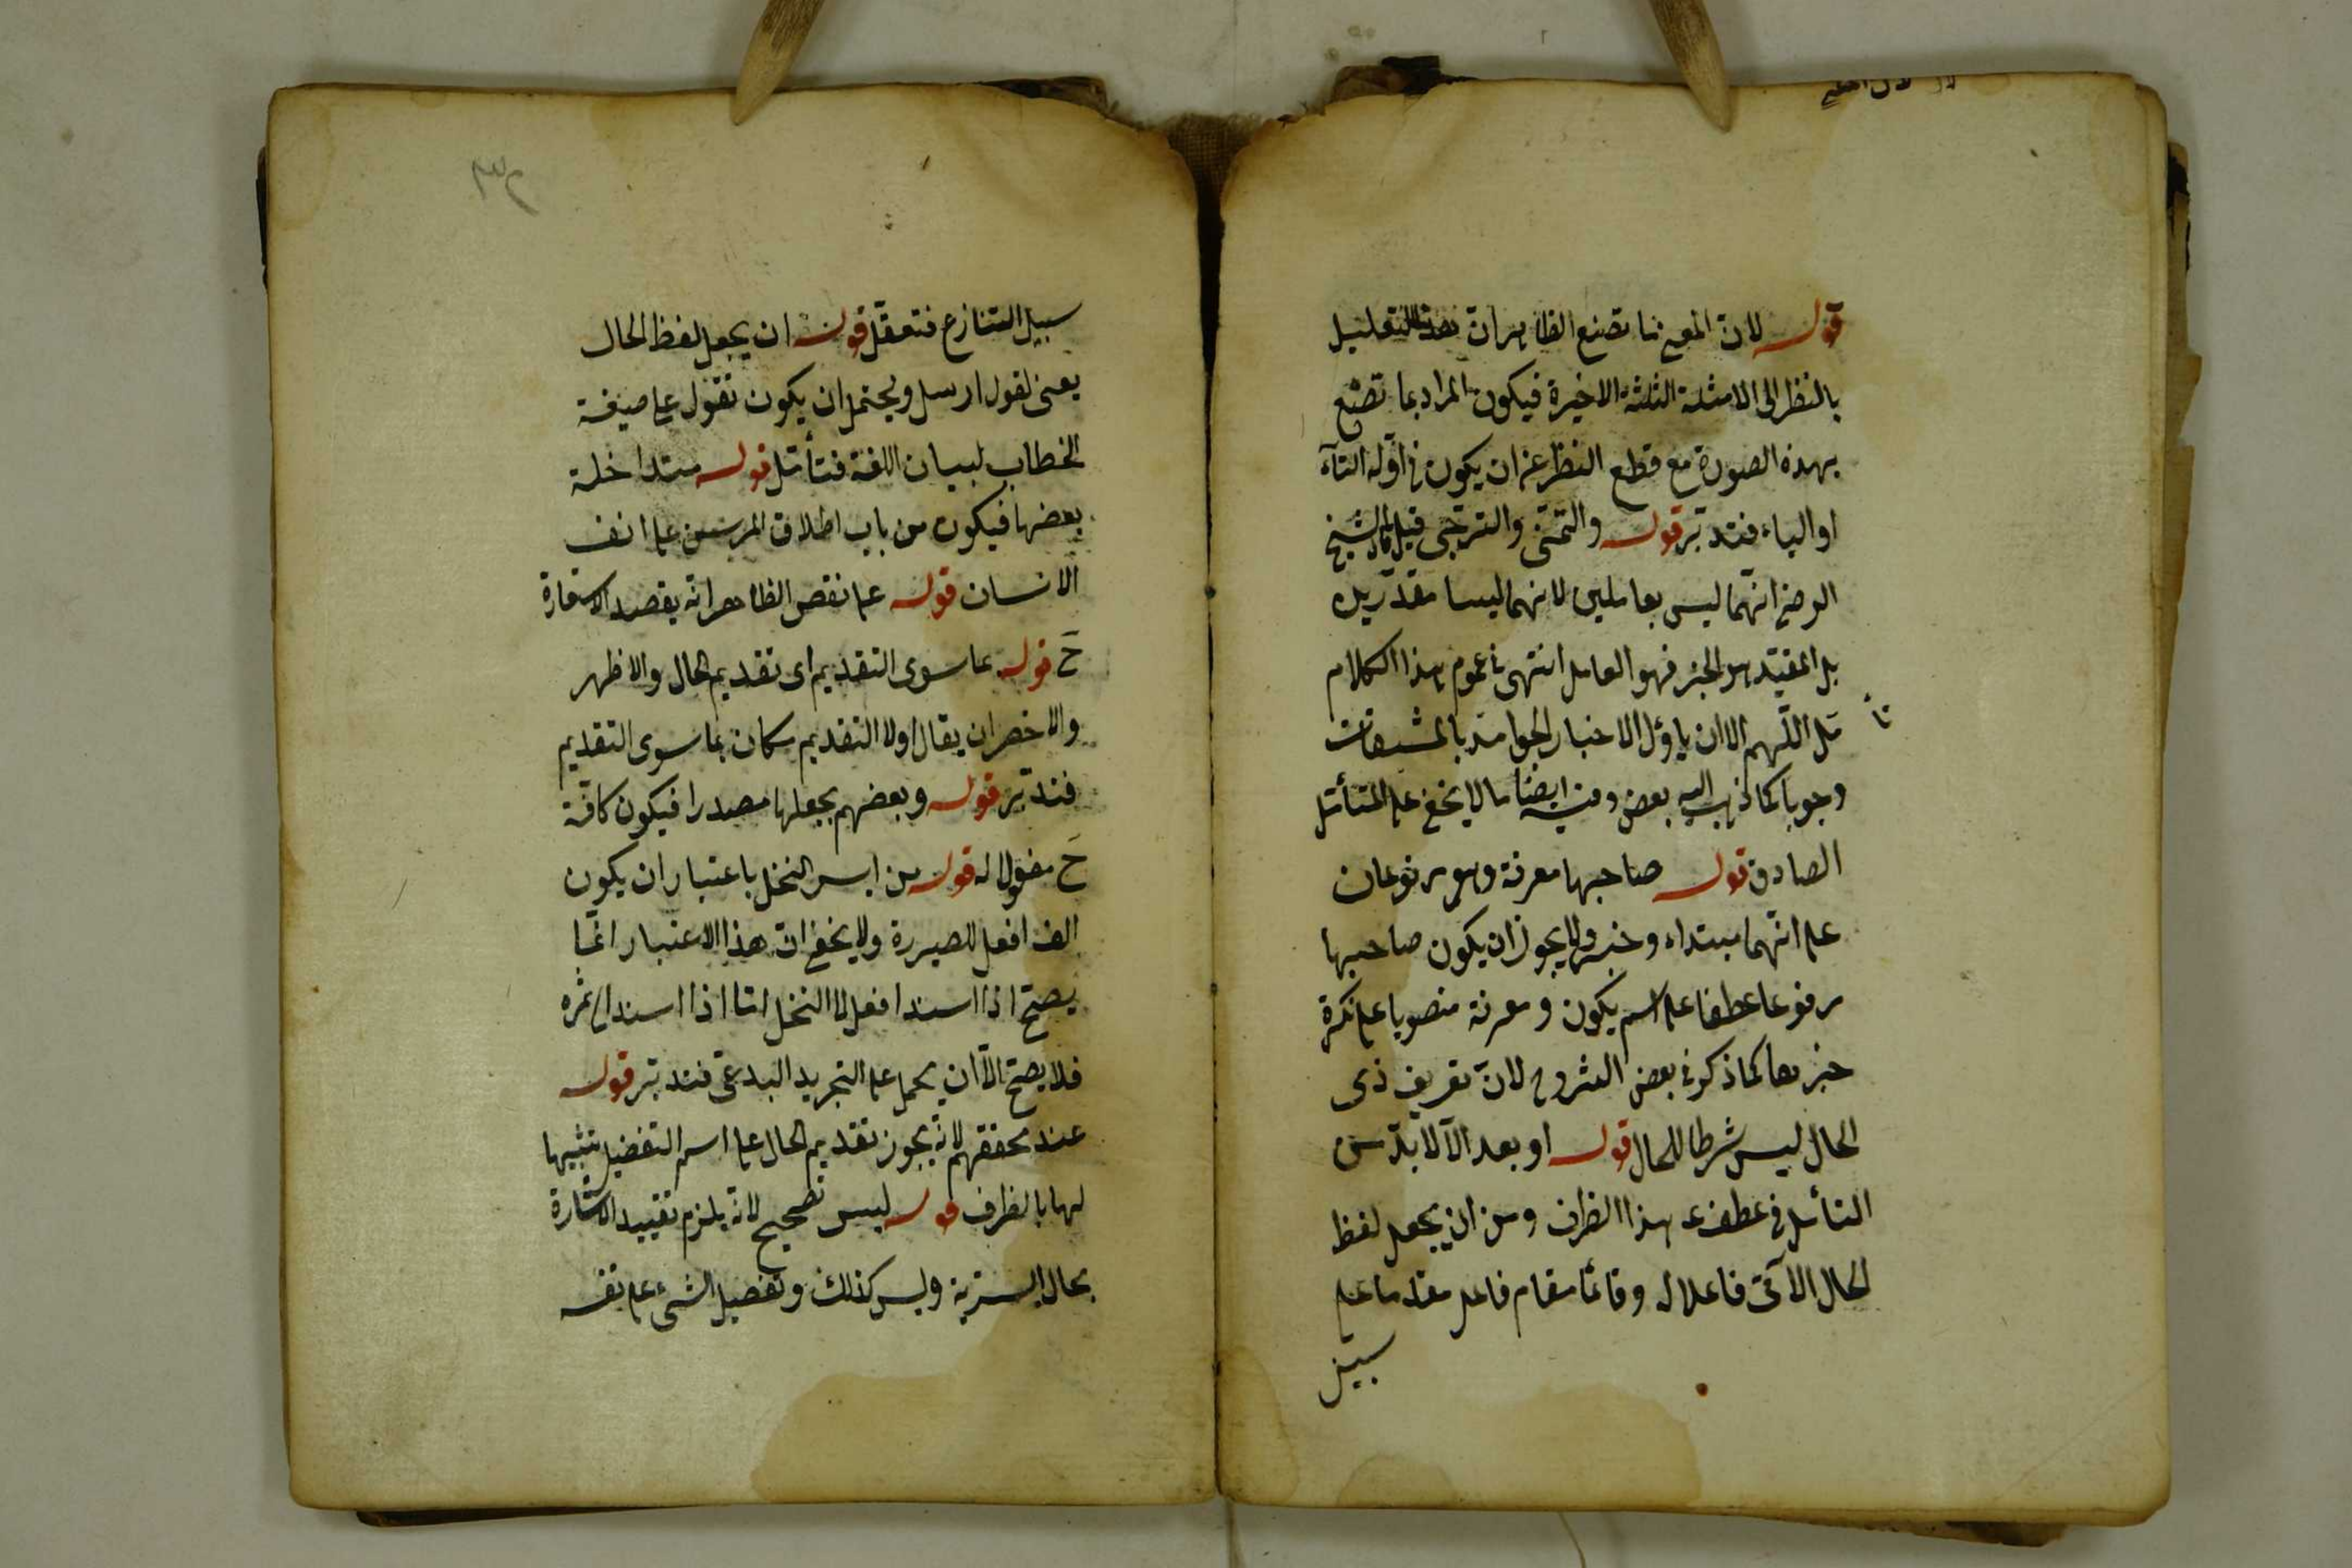 قوله لان المعنى ما تصنع الظاهر ان هذا التعليل
بالنظر الى الامثلة الثلثة الاخيرة فيكون المراد بما تصنع
بهذه الصورة مع قطع النظر عن ان يكون فى اوله التآء
او الياء فتدبر قوله والتمنى والترجى قيل قال الشيخ
الرضى انهما ليس بعاملين لانهما ليسا مقدرين
بل المقيد هو الخبر فهو العامل انتهى فى عموم هذا الكلام
تأ
مل اللهم الا ان ياؤل الاخبار الجوامد بالمشتقات
وجوبا كما ذهب اليه بعض وفيه ايضا ما لا يخفى على المتأمل
الصادق قوله صاحبها معرفة وهو مرفوعان
على انهما مبتداء وخبر ولا يجوز ان يكون صاحبها
مرفوعا عطفا على اسم يكون ومعرفة منصوبا على نكرة
خبرها كما ذكر فى بعض الشروح لان تعريف ذى
الحال ليس شرطا للحال قوله او بعد الا لا بد من
التأمل فى عطف هذا الظرف ومن ان يجعل لفظ
الحال الآتى فاعلا له وقائما مقام فاعل مقدما على
سبيل
سبيل التنازع فتعقل قوله ان يجعل لفظ الحال
يعنى لقول ارسل ويحتمل ان يكون تقول على صيغة
الخطاب لبيان اللغة فتأمل قوله متداخلة
بعضها فيكون من باب اطلاق المرسن على انف
الانسان قوله على نقص الظاهر انه يقصد الاستعارة
ح قوله بما سوى التقديم اى تقديم الحال والاظهر
والاخصر ان يقال اولا التقديم مكان بما سوى التقديم
فتدبر قوله وبعضهم يجعلها مصدرا فيكون كافة
ح مفعولا له قوله من ابسر النخل باعتبار ان يكون
الف افعل للصيرورة ولا يخفى ان هذا الاعتبار انما
يصح اذا اسند افعل الى النخل اما اذا اسند الى ثمره
فلا يصح الا ان يحمل على التجريد البدعى فتدبر قوله
عند محققهم لانه يجوز تقديم الحال على اسم التفضيل تشبيها
لها بالظرف قوله ليس تصحيح لانه يلزم تقييد الاشارة
بحال البسرية وليس كذلك وتفضيل الشىء على نفسه